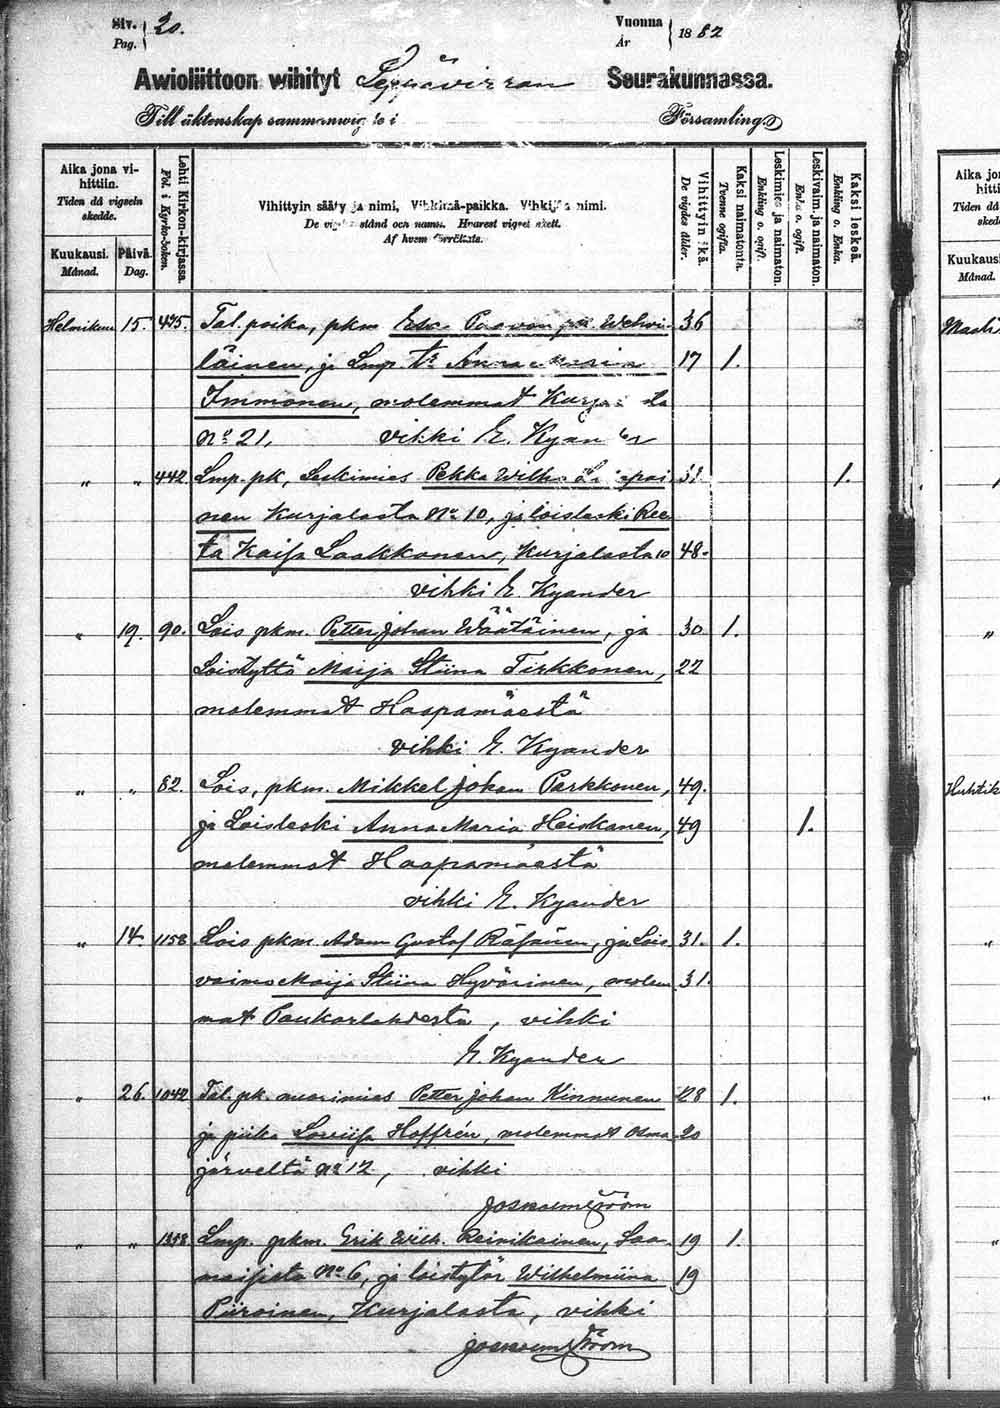 Siv. 20.
Pag.
Vuonna
År
1882
Awioliittoon wihityt Leppävirran Seurakunnassa.
Till äktenskap sammanwigde i Församling
Aika jona vi-
hittiin.
Tiden då vigseln
skedde.
Kuukausi.
Månad.
Päivä.
Dag.
Lehti Kirkon-kirjassa.
Fol. i Kyrko-boken.
Vihittyin sääty ja nimi, Vihkimä-paikka. Vihkijän nimi.
De vigdas stånd och namn. Hvarest vigsel skett.
Af hvem förrättats.
Vihittyin ikä.
De vigdes ålder.
Kaksi naimatonta.
Tvenne ogifta.
Leskimies ja naimaton.
Enkling o. ogift.
Leskivaimo ja naimaton.
Enka o. ogift.
Kaksi leskeä.
Enkling o. Enka.
Helmikuu 15. 475. Tal. poika, pkm Paavon Wehvi- 36
läinen, ja Lmp. Anna 17 1.
Immonen, molemmat
No 21, vihki E. Kyander
" " 442. Lmp. pk, Leskimies Pekka Wilh. 1.
nen Kurjalasta No 10, ja loisleski Ree
ta Kaisa Laakkonen, Kurjalasta 10 48.
vihki E. Kyander
" 19. 90. Lois pkm. Petter Johan Wäätäinen, ja 30 1.
Loistyttö Maija Stiina Tirkkonen, 22
molemmat Haapamäestä
vihki E. Kyander
" " 82. Lois, pkm. Mikkel Johan Parkkonen, 49.
ja Loisleski Anna Maria Heiskanen, 49 1.
molemmat Haapamäestä
vihki E. Kyander
" 14. 1158 Lois pkm. Adam Gustaf Räsänen, ja Lois 31. 1.
vaimo Maija Stiina Hyvärinen, molem 31.
mat Paukarlahdesta, vihki
E. Kyander
" 26. 1042 Tal. pk. nuorimies Petter Johan Kinnunen 28 1.
ja piika Loviisa Hoffrén, molemmat Osma 20
järveltä No 12, vihki
" " Lmp. pkm. Erik Wilh. Reinikainen, Saa- 19 1.
maisista No 6, ja loistytär Wilhelmiina 19
Piiroinen, Kurjalasta, vihki
Aika jon
hittii
Tiden då
skedd
Kuukausi
Månad.
Huhtik